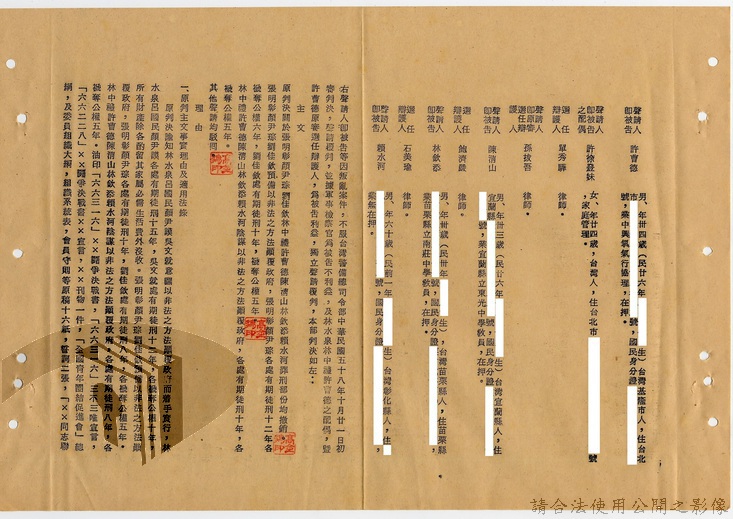 聲請人
即被告 許曹德 男、年卅四歲(民廿六年 生)台灣基隆市人,住台北
市 號,業中興氧氣行協理,在押。 號,國民身分證
聲請人
即被告 許徐㬢妹 女、年廿四歲,台灣人,住台北市 號
之配偶 ,家庭管理。
選任
辯護人 單秀驊 律師。
聲請人
即被告 孫拔吾 律師。
選任辯
護人
聲請人
即被告 陳清山 男、年卅三歲(民廿六年 生)台灣宜蘭縣人,住
宜蘭縣 號,業宜蘭縣立東光中學教員,在押。 號,國民身分證
選任
辯護人 鮑濟籙 律師。
聲請人
即被告 林欽添 男、年卅歲(民卅年 生),台灣苗栗縣人,住苗栗縣
號,業苗栗縣立南莊中學教員,在押。 號,國民身分證
選任
辯護人 石美瑜 律師。
聲請人
即被告 賴水河 男、年六十歲(民前一年 生)台灣彰化縣人,住
號,國民身分證
業無在押。
右聲請人即被告等因叛亂案件,不服台灣警備總司令部中華民國五十八年十月廿一日初
審判決,聲請覆判,並據軍事檢察官為被告不利益,及林水泉林中禮許曹德之配偶,暨
許曹德原審選任辯護人,為被告利益,獨立聲請覆判,本部判決如左:
主文
原判決關於張明彰顏尹琮劉佳欽林中禮許曹德陳清山林欽添賴水河罪刑部份均撤銷。
張明彰顏尹琮劉佳欽預備以非法之方法顛覆政府,張明彰顏尹琮各處有期徒刑十二年各
褫奪公權六年,劉佳欽處有期徒刑十年,褫奪公權五年。
林中禮許曹德陳清山林欽添賴水河陰謀以非法之方法顛覆政府,各處有期徒刑十年,各
褫奪公權五年。
其他聲請均駁回
理由
一、原判主文事實理由及適用法條
原判決認知林水泉呂國民顏尹謨吳文就意圖以非法之方法顛覆政府而着手實行,林
水泉呂國民顏尹謨各處有期徒刑十五年,吳文就處有期徒刑十二年,各褫奪公權十年,
所有財產除各酌留其家屬必需生活費外沒收。張明彰顏尹琮劉佳欽預備以非法之方法顛
覆政府,張明彰顏尹琮各處有期徒刑十年,劉佳欽處有期徒刑八年,各褫奪公權五年。
林中禮許曹德陳清山林欽添賴水河陰謀以非法之方法顛覆政府,各處有期徒刑八年,各
褫奪公權五年。油印「六六三一六」××鬪爭決戰書,「六六三一六」三不三唯宣言,
「六六二二八」××鬪爭決戰書,××宣言,××刊物一件,「全國青年團結促進會」總
綱,及委員組織大綱,組織系統表,會員守則等原稿十六紙,誓詞二張。「××同志聯
請合法使用公開之影像